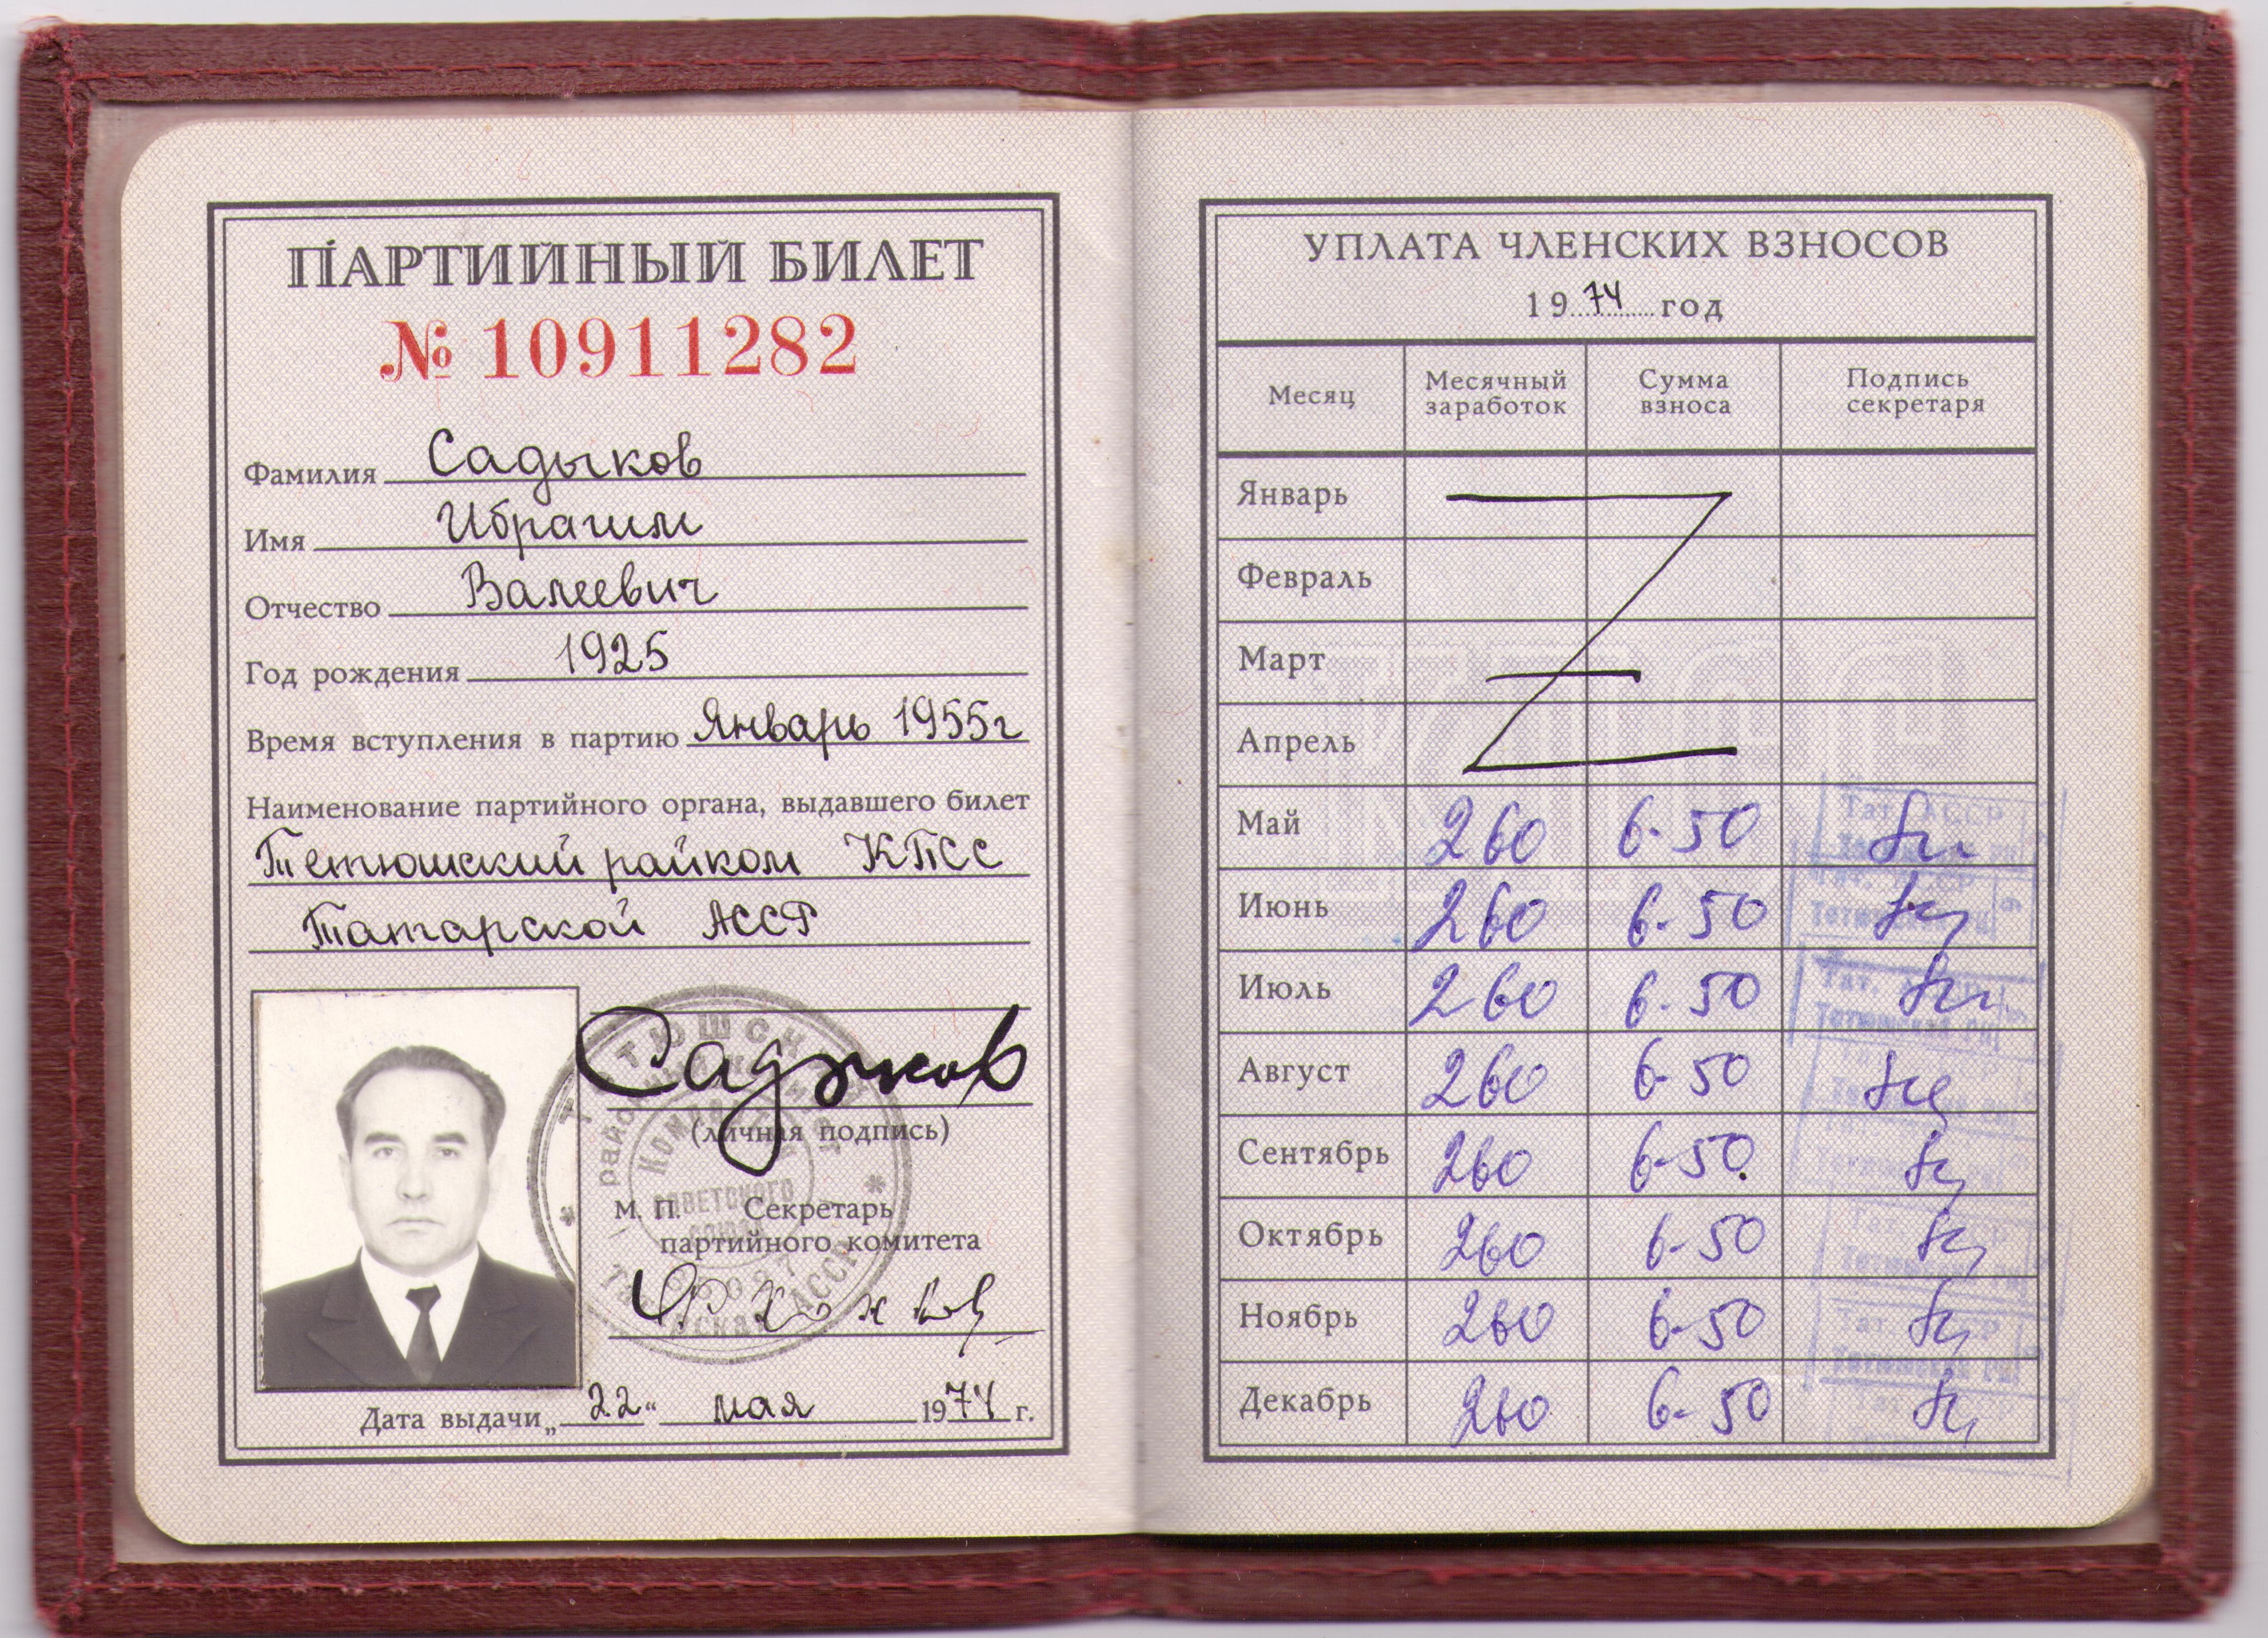 ПАРТИЙНЫЙ БИЛЕТ
№ 10911282
Фамилия Садыков
Имя Ибрагим
Отчество Валеевич
Год рождения 1925
Время вступления в партию Январь 1955г
Наименование партийного органа, выдавшего билет
Тетюшский райком КПСС
Татарской АССР
Садыков
(личная подпись)
М. П. Секретарь
партийного комитета
Дата выдачи „22“ мая 1974 г.
УПЛАТА ЧЛЕНСКИХ ВЗНОСОВ
1974 год
Месяц Месячный заработок Сумма взноса Подпись секретаря
Январь
Февраль
Март
Апрель
Май 260 6-50
Июнь 260 6-50
Июль 260 6-50
Август 260 6-50
Сентябрь 260 6-50
Октябрь 260 6-50
Ноябрь 260 6-50
Декабрь 260 6-50